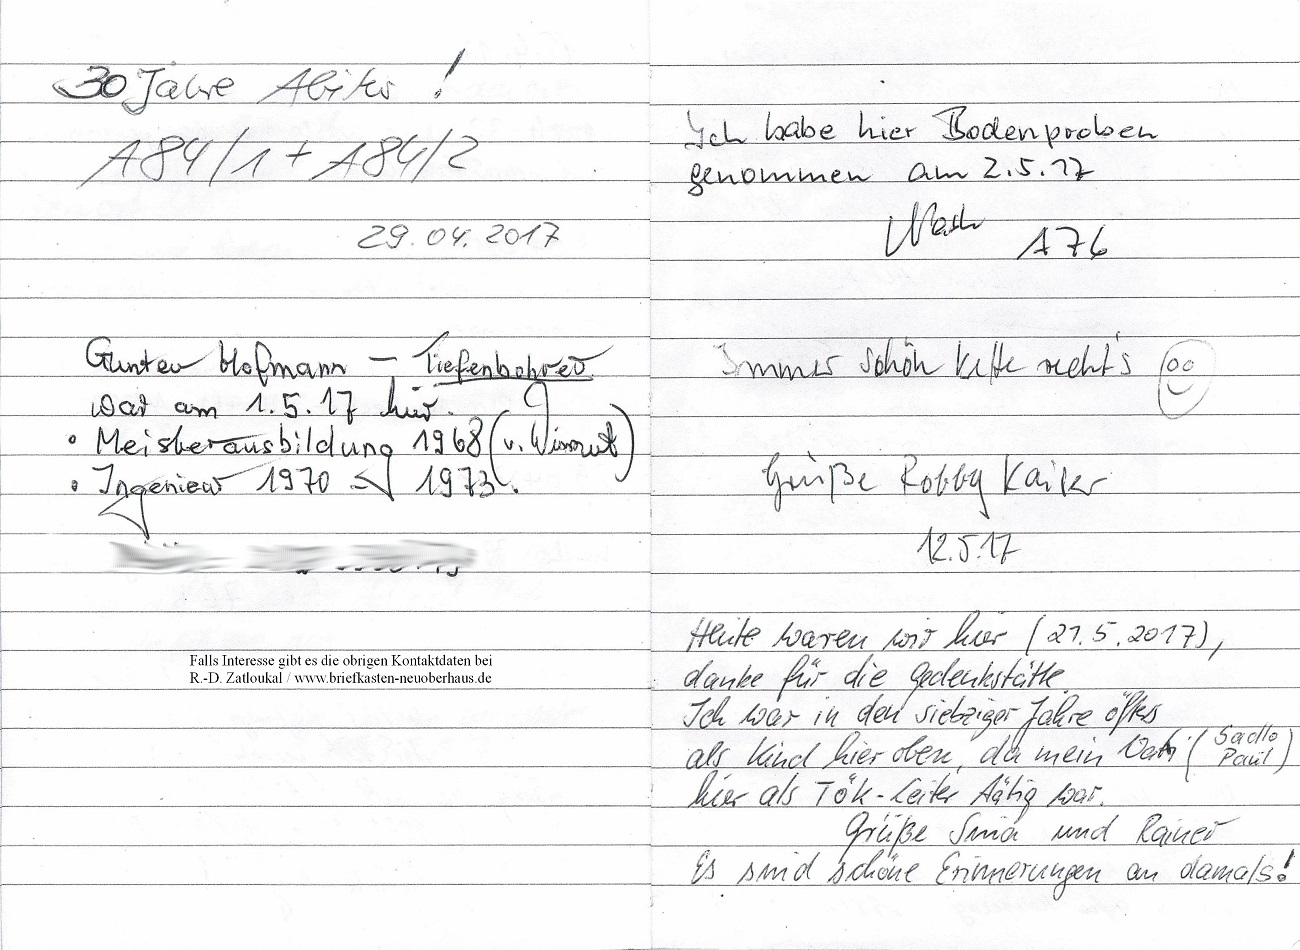 30 Jahre Abitur !
A84/1 + A84/2
29.04.2017
Gunter Hofmann – Tiefenbohrer
war am 1.5.17 hier.
• Meisterausbildung 1968 (v. Wismut)
• Ingenieur 1970 – 1973.
Falls Interesse gibt es die obrigen Kontaktdaten bei
R.-D. Zatloukal / www.briefkasten-neuoberhaus.de
Ich habe hier Bodenproben
genommen am 2.5.17
A76
Immer schön Kette recht's
Grüße Robby Kaiser
12.5.17
Heute waren wir hier (21.5.2017),
danke für die Gedenkstätte.
Ich war in den siebziger Jahre öfters
als Kind hier oben, da mein Vati (Sadlo Paul)
hier als TÖK-Leiter tätig war.
Grüße Sina und Rainer
Es sind schöne Erinnerungen an damals!